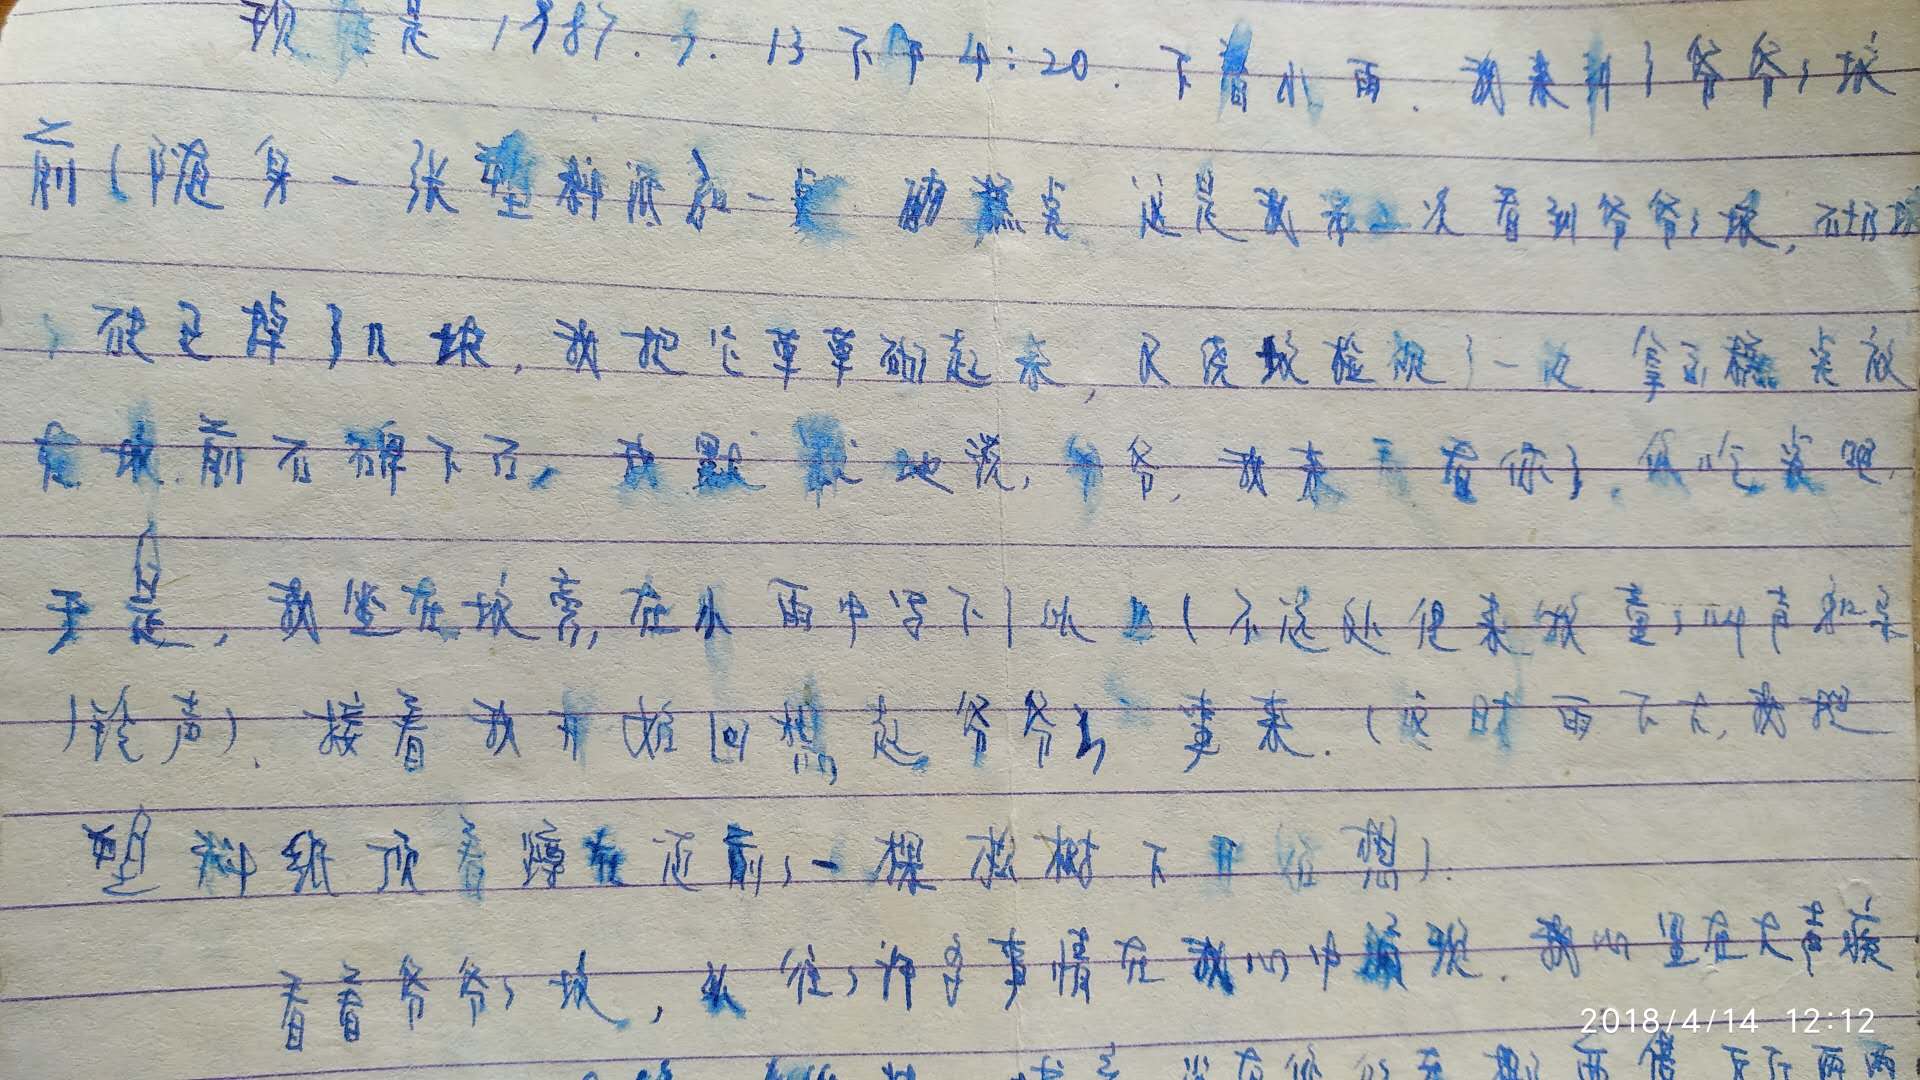 现在是1987.3.13下午4:20.下着小雨.我来到了爷爷的坟
前(随身一张塑料纸和一 糕点 这是我第一次看到爷爷的坟,
砖已掉了几块,我把它草草砌起来,又绕坟检视了一边 拿了糕点放
在坟前石碑下后,我默默地说,爷爷,我来看你了.你吃点吧,
于是,我坐在坟旁,在小雨中写下了以上(不远处传来牧童的叫声和
铃声).接着我开始回想起爷爷的事来.(这时雨下大,我把
塑料纸顶着蹲在近前的一棵松树下开始想).
看着爷爷的坟,以往的许多事情在我心中浮现.我心里在大声疾
2018/4/14 12:12